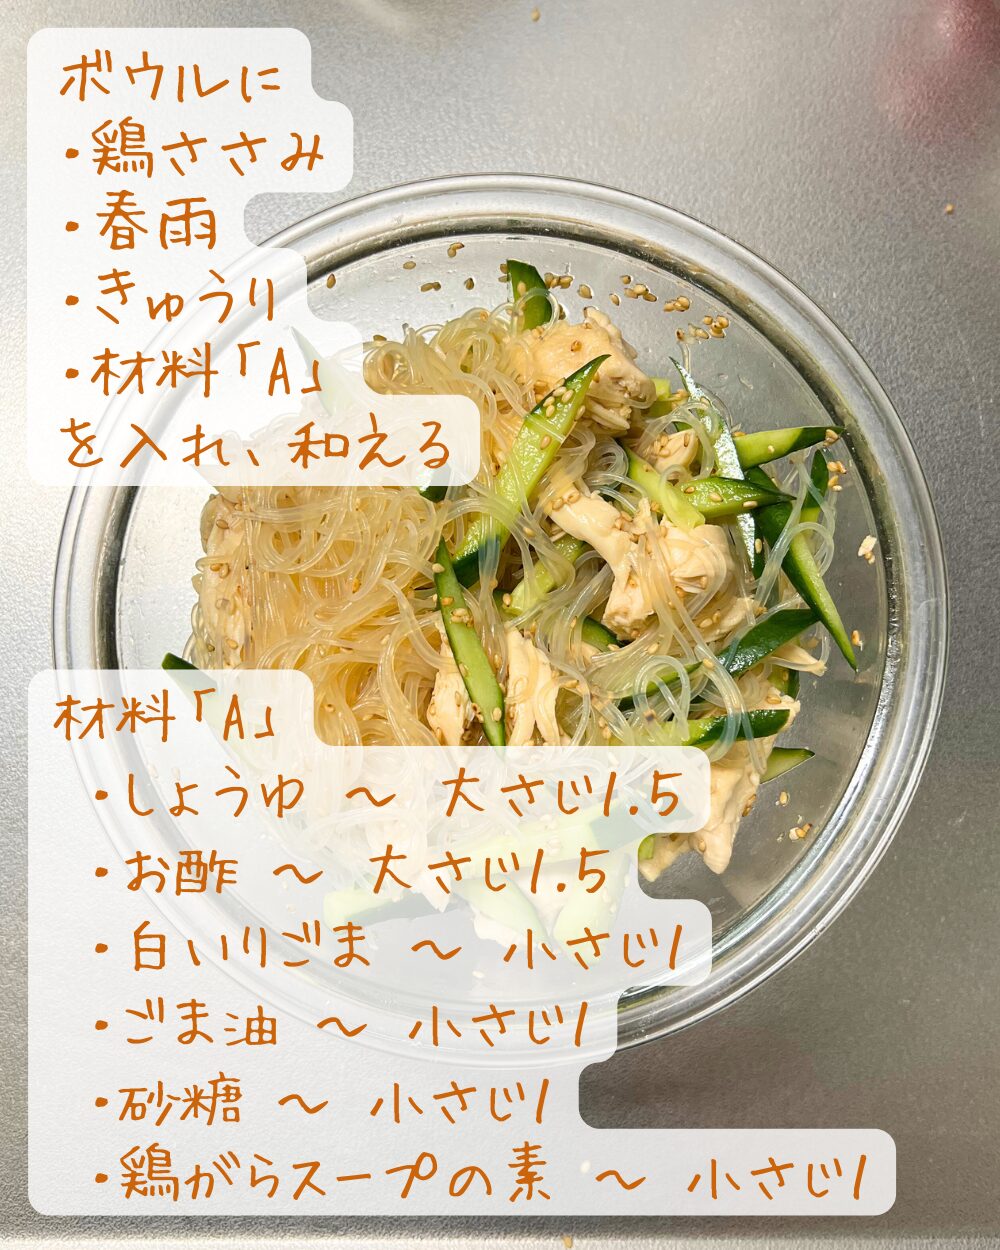 ボウルに
・鶏ささみ
・春雨
・きゅうり
・材料「A」
を入れ、和える
材料「A」
・しょうゆ 〜 大さじ1.5
・お酢 〜 大さじ1.5
・白いりごま 〜 小さじ1
・ごま油 〜 小さじ1
・砂糖 〜 小さじ1
・鶏がらスープの素 〜 小さじ1